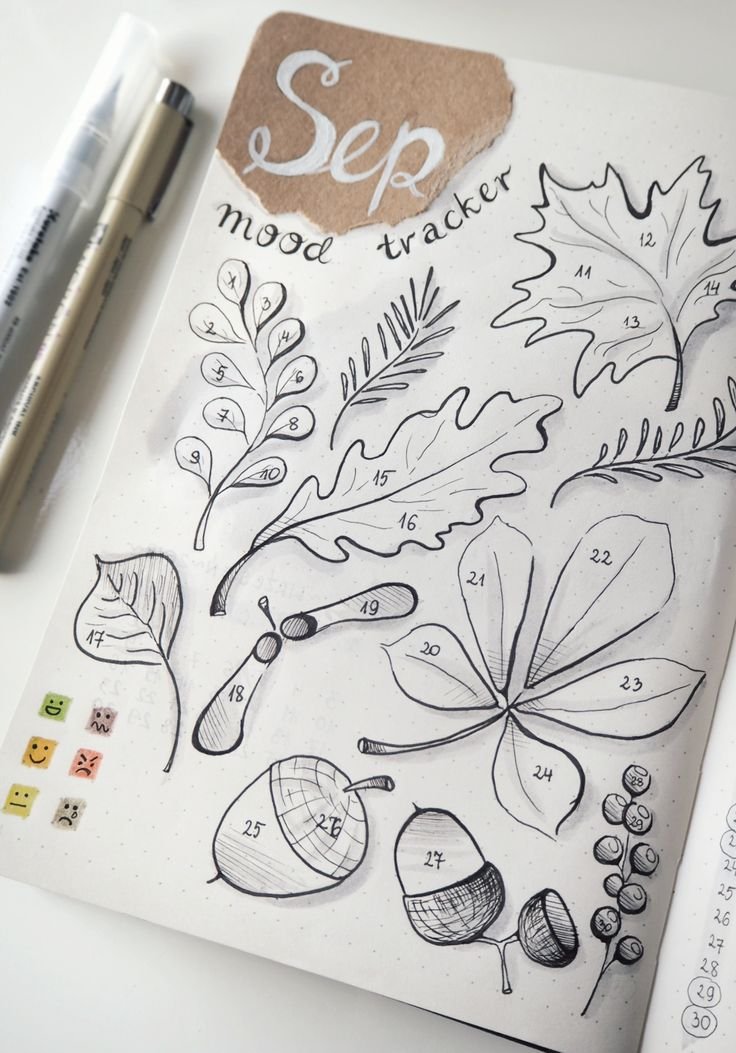 Sep
mood tracker
1
3
2
4
5
6
7
8
9
10
12
11
14
13
15
16
17
18
19
20
21
22
23
24
25
26
27
28
29
30
24
25
26
27
28
29
30